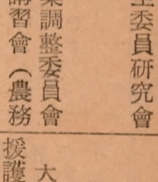 委員研究會
調整委員會
講習會（農務
大
援護